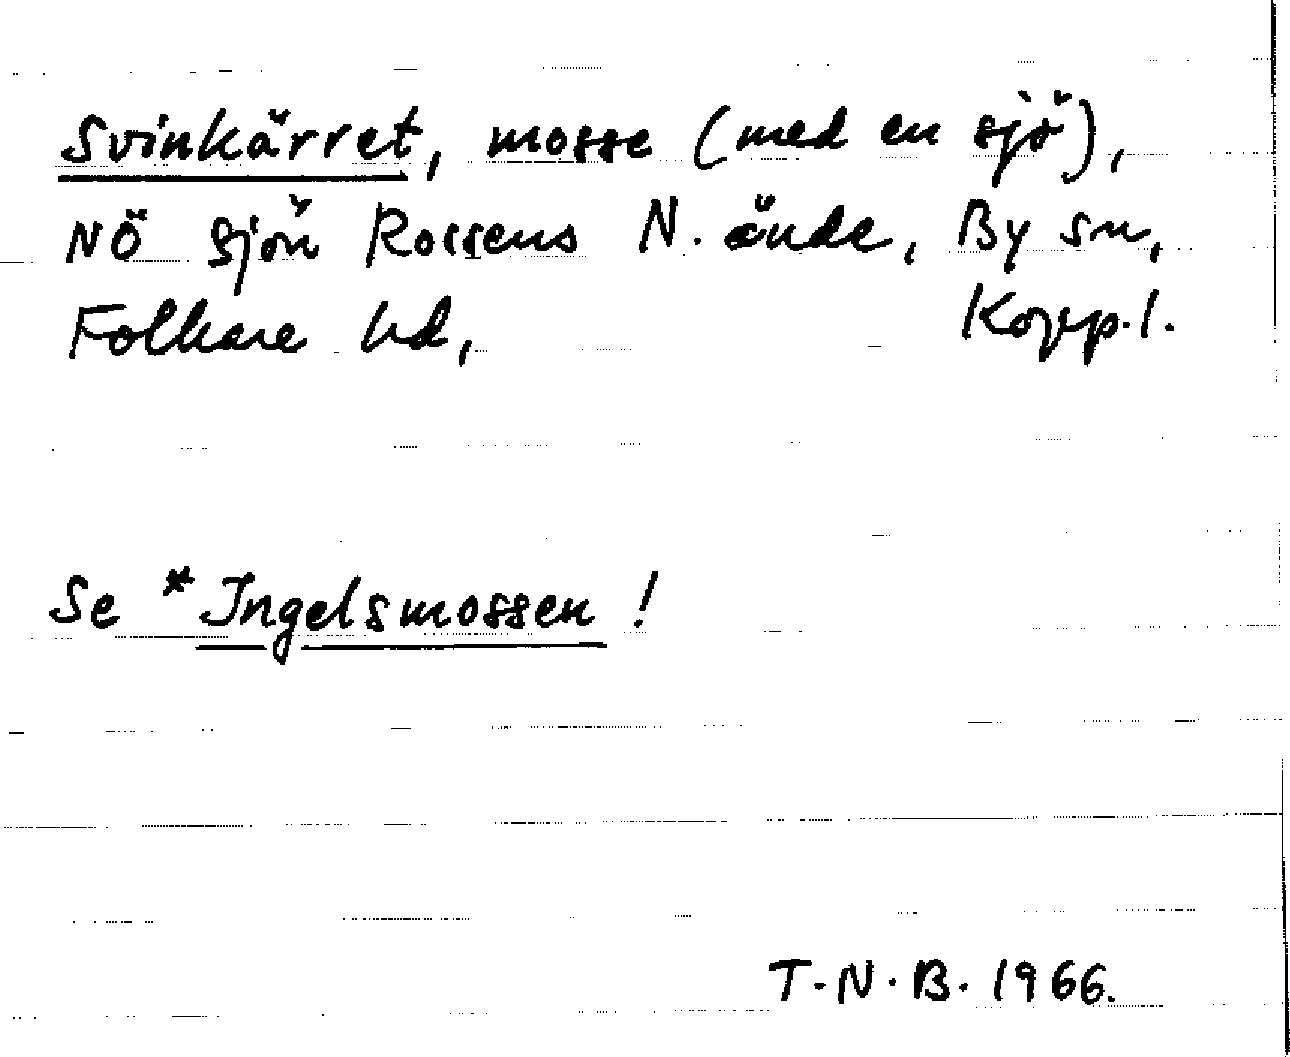 Svinkärret, mosse (med en sjö),
NÖ sjön Rossens N. ände, By sn,
Folkare hd, Kopp.l.
Se *Ingelsmossen!
T.N.B. 1966.